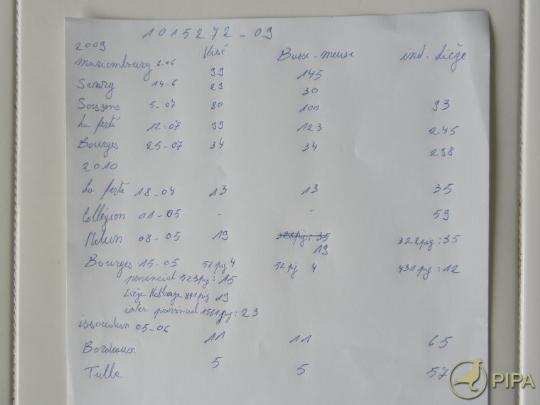 1015272-09
2009 Visé Basse-meuse ind. Liège
Mariembourg 2.06 99 145
14-6 29 30
Soissons 5-07 80 100 93
La ferté 12-07 99 123 245
Bourges 25-07 34 34 298
2010
La ferté 18-04 13 13 35
Collégien 01-05 - - 59
Melun 08-05 19 19 328pig: 35
Bourges 15-05 52pig 4 52pig 4 431pig: 12
provincial 529pig: 15
Liège Hesbaye pig 19
inter provincial pig: 23
issoudun 05-06
Bordeaux 11 11 65
Tulle 5 5 57
PIPA